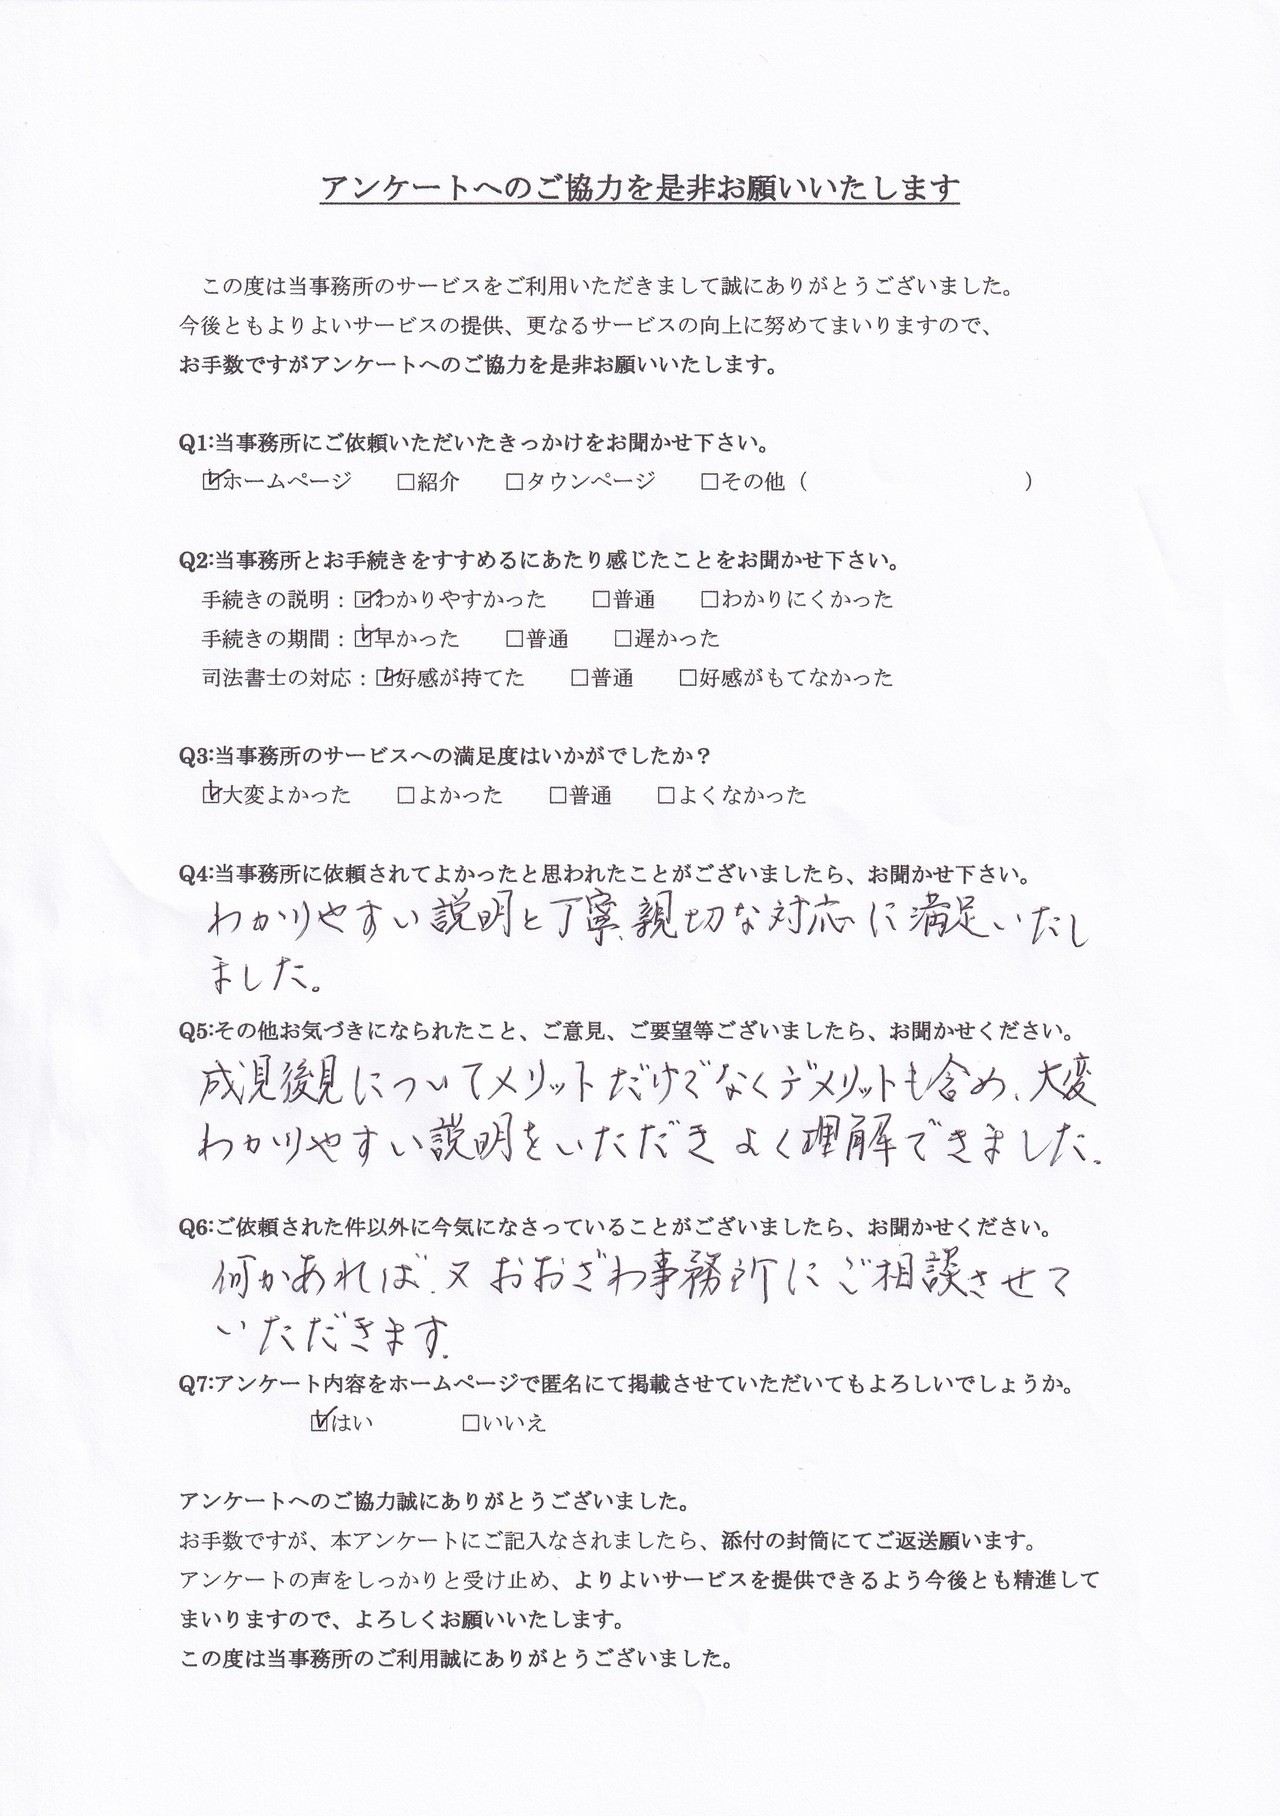 アンケートへのご協力を是非お願いいたします
この度は当事務所のサービスをご利用いただきまして誠にありがとうございました。
今後ともよりよいサービスの提供、更なるサービスの向上に努めてまいりますので、
お手数ですがアンケートへのご協力を是非お願いいたします。
Q1:当事務所にご依頼いただいたきっかけをお聞かせ下さい。
☑ホームページ　□紹介　□タウンページ　□その他（　　　　　）
Q2:当事務所とお手続きをすすめるにあたり感じたことをお聞かせ下さい。
手続きの説明：☑わかりやすかった　□普通　□わかりにくかった
手続きの期間：☑早かった　□普通　□遅かった
司法書士の対応：☑好感が持てた　□普通　□好感がもてなかった
Q3:当事務所のサービスへの満足度はいかがでしたか？
☑大変よかった　□よかった　□普通　□よくなかった
Q4:当事務所に依頼されてよかったと思われたことがございましたら、お聞かせ下さい。
わかりやすい説明と丁寧、親切な対応に満足いたし
ました。
Q5:その他お気づきになられたこと、ご意見、ご要望等ございましたら、お聞かせください。
成見後見についてメリットだけでなくデメリットも含め、大変
わかりやすい説明をいただきよく理解できました。
Q6:ご依頼された件以外に今気になさっていることがございましたら、お聞かせください。
何かあれば、又おおざわ事務所にご相談させて
いただきます。
Q7:アンケート内容をホームページで匿名にて掲載させていただいてもよろしいでしょうか。
☑はい　□いいえ
アンケートへのご協力誠にありがとうございました。
お手数ですが、本アンケートにご記入なされましたら、添付の封筒にてご返送願います。
アンケートの声をしっかりと受け止め、よりよいサービスを提供できるよう今後とも精進して
まいりますので、よろしくお願いいたします。
この度は当事務所のご利用誠にありがとうございました。